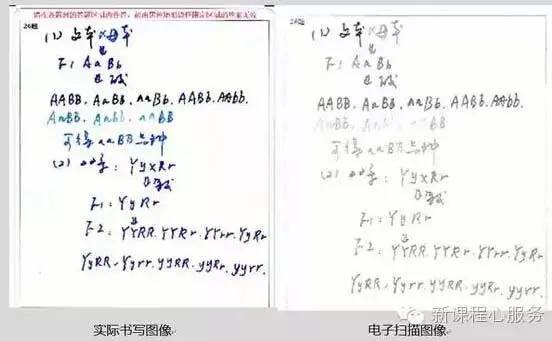 请在各题目的答题区域内作答，超出黑色矩形边框限定区域的答案无效
26题
(1) 父本×母本
↓
F1 AaBb
↓
AABB. AaBB. aaBb. AABb. AAbb.
AaBB. Aabb. aaBB
可得aaBB品种
(2) : YyxRr
F1: YyRr
F2: YYRR. YYRr. YYrr. YyRr
YyRR. Yyrr. yyRR. yyRr. yyrr.
26题
(1) 父本×母本
↓
F1 AaBb
↓
AABB. AaBB. aaBb. AABb. AAbb.
AaBB. Aabb. aaBB
可得aaBB品种
(2) : YyxRr
F1: YyRr
F2: YYRR. YYRr. YYrr. YyRr
YyRR. Yyrr. yyRR. yyRr. yyrr.
实际书写图像
电子扫描图像
新课程心服务